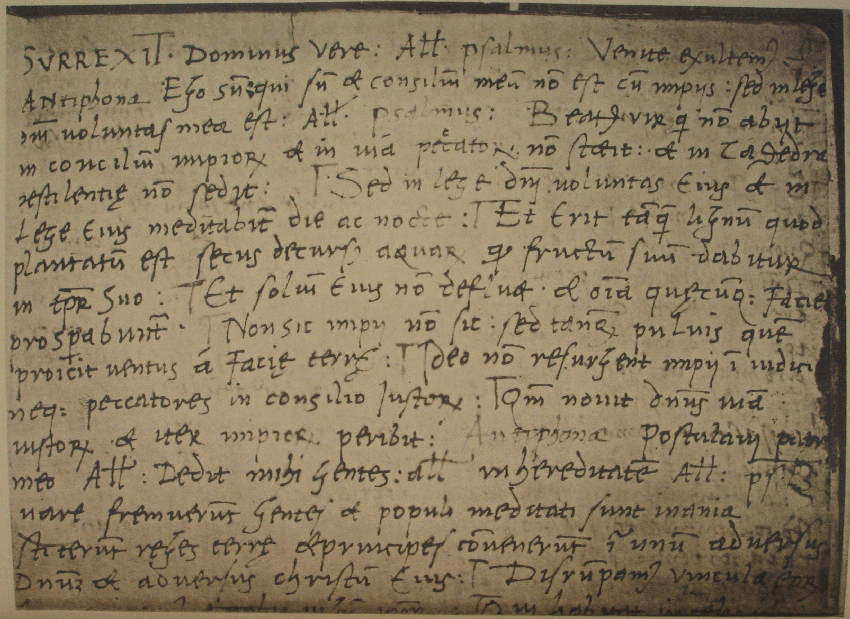 SURREXIT. Dominus vere: All. psalmus: Venite exultem9
Antiphona Ego sū qui sū & consiliū meū nō est cū impiis: sed in lege
voluntas mea est: All. psalmus: Beat9 vir q̄ nō abijt
in conciliū impioꝝ & in via peccatoꝝ nō stetit: & in cathedra
pestilentię nō sedit: Sed in lege dn̄i voluntas Eius & in
Lege Eius meditabit̄ die ac nocte: Et Erit tāq̄ lignū quod
plantatū est secus decurs9 aquaꝝ qđ fructū suū dabit
in tp̄r Suo: Et foliū Eius nō defluet & oīa quęcūq: Faciet
prospabunt̄. Non sic impii nō sic: sed tanq̄ puluis quē
proicit ventus ā Facię terrę: Ideo nō resurgent impij ī iudici
neq: peccatores in consilio Iustoꝝ: Qm̄ nouit dn̄us viā
iustoꝝ & iter impioꝝ peribit: Antiphona Postulaui patr
meo All: Dedit mihi gentes: all in hereditatē All: ps.
uare fremuerūt gentes & populi meditati sunt inania
stiterūt reges terrę & principes cōvenerūt ī unū adversus
Dnūz & adversus christū Eius: Disrūpam9 vincula eoꝝ